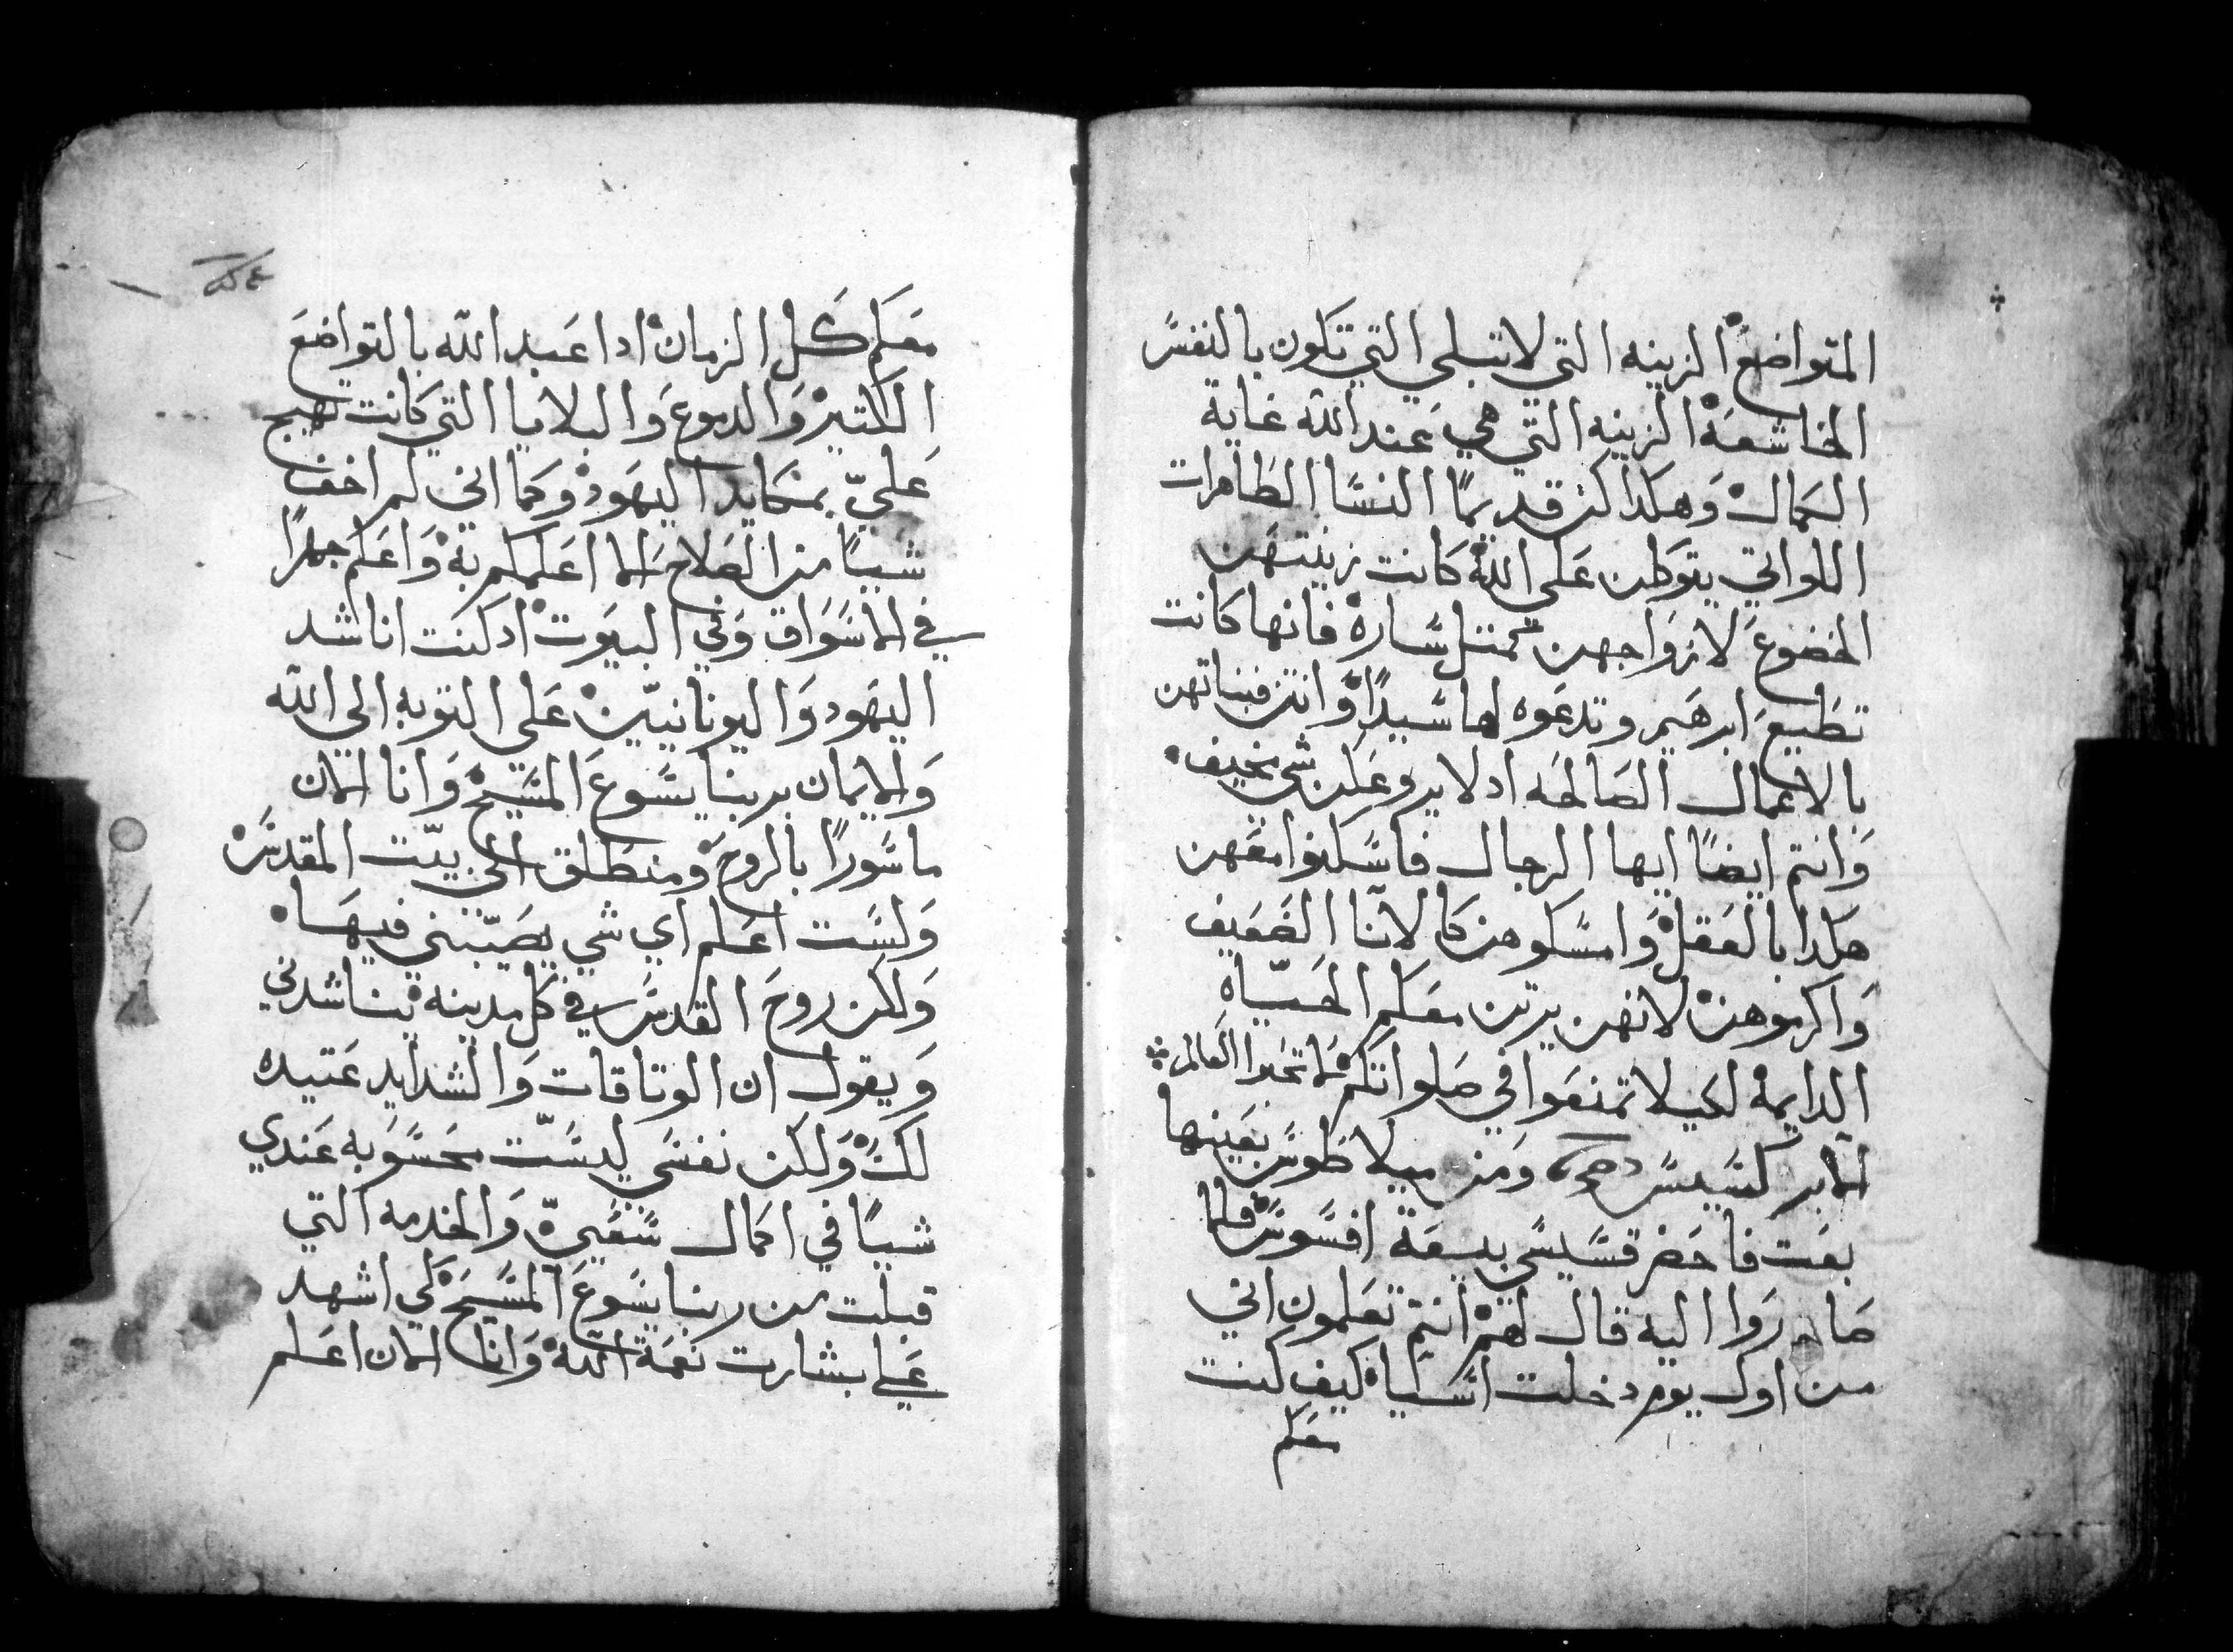 المتواضع الزينه التي لا تبلي التي تكون بالنفس
الخاشعة الزينه التي هي عند الله غاية
الكمال وهكذا كن قديمًا النسا الطاهرات
اللواتي يتوكلن علي الله كانت زينتهن
الخضوع لازواجهن كمتل ساره فانها كانت
تطيع ابرهيم وتدعوه لها سيدًا وانتن فبناتهن
بالاعمال الصالحه اد لا يروعكن شي مخيف
وانتم ايضًا ايها الرجال فاسكنوا معهن
هكدا بالعقل وامسكوهن كالانا الضعيف
واكرموهن لانهن يرتن معكم الحياه
الدايمة لكيلا تمنعوا في صلواتكم لا تحبوا العالم
الابركسيس ومن ميلاطوس بعينها
بعت فاحضر قسيسي بيعة افسوس فلما
صاروا اليه قال لهم انتم تعلمون اني
من اول يوم دخلت اسيا كيف كنت
معكم
معكم كل الزمان ادا عبد الله بالتواضع
الكتير والدموع والبلايا التي كانت تهيج
علي بمكايد اليهود وكما اني لم اخف
شييًا من الصلاح الا اعلمكم به واعلم جهرًا
في الاسواق وفي البيوت اد كنت اناشد
اليهود واليونانيين علي التوبه الي الله
والايمان بربنا يسوع المسيح وانا الان
ماسورًا بالروح ومنطلق الي بيت المقدس
ولست اعلم اي شي يصيبني فيها
ولكن روح القدس في كل مدينه يناشدني
ويقول ان الوتاقات والشدايد عتيده
لك ولكن نفسي ليست محسوبه عندي
شييًا في اكمال سعيي والخدمه التي
قبلت من ربنا يسوع المسيح لكي اشهد
علي بشارت نعمة الله وانا الان اعلم